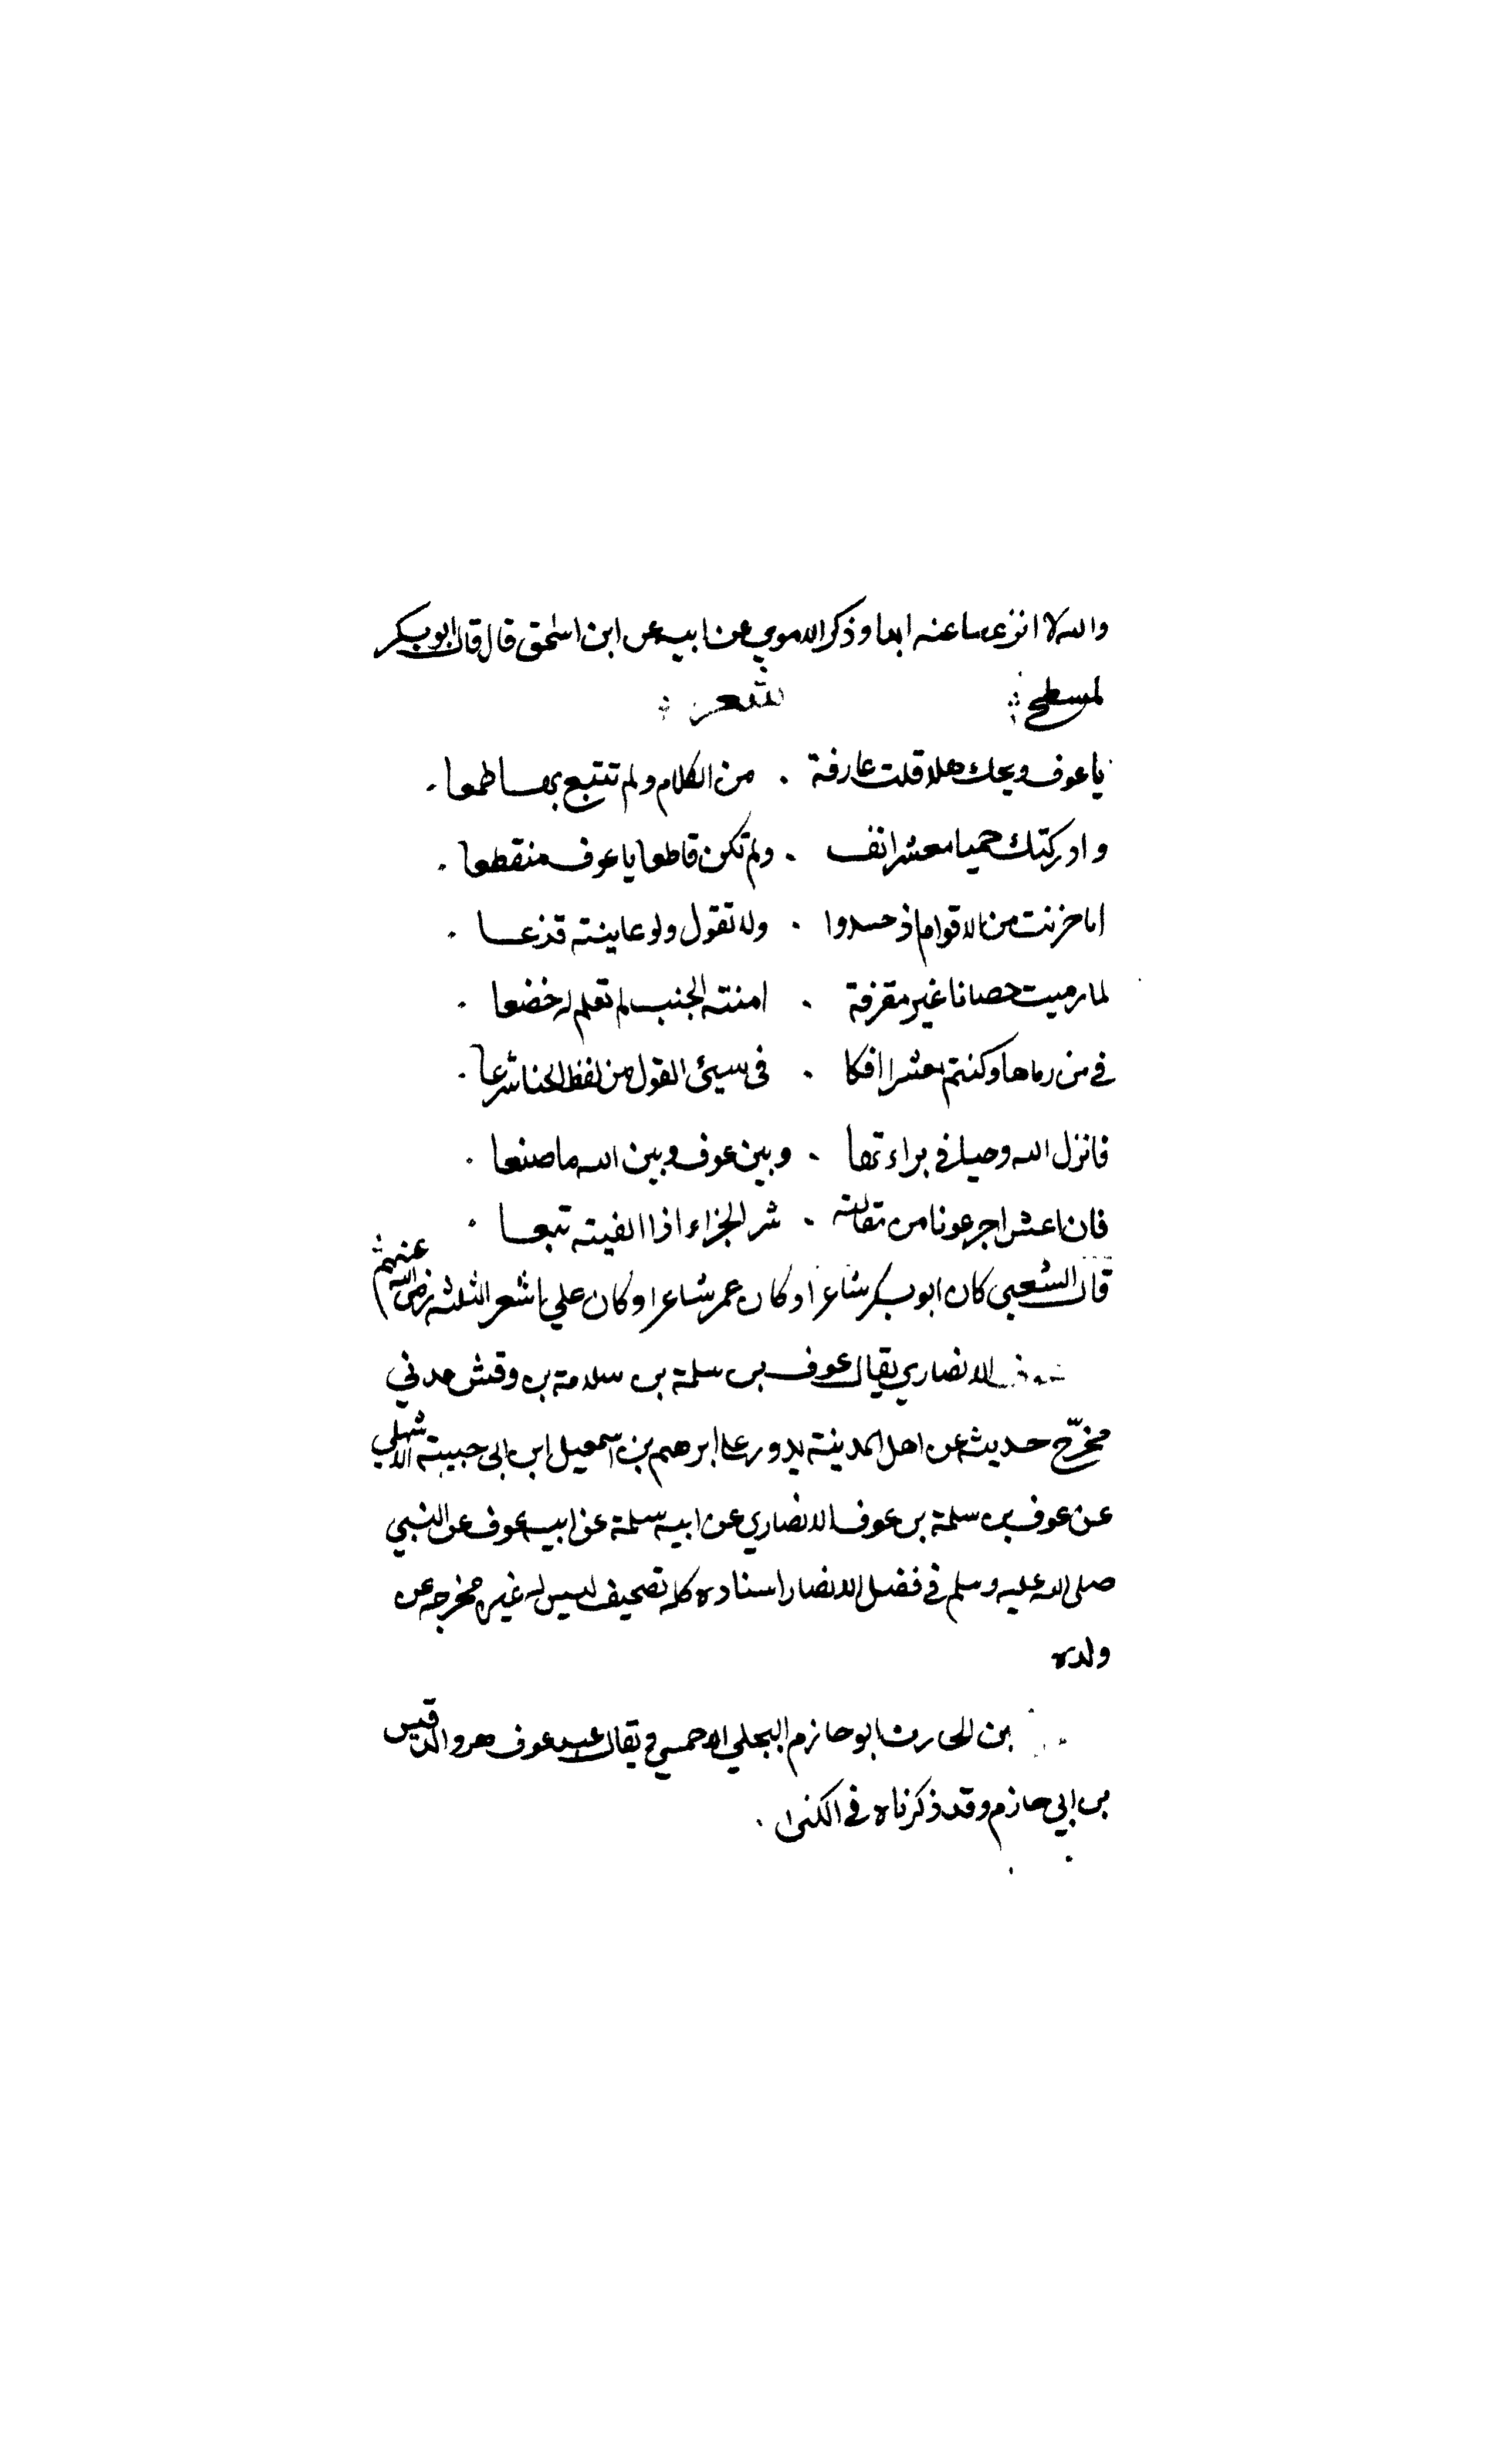 والله لا انزعها عنه ابدا وذكر الاموي عن ابيه عن ابن اسحق قال قال ابو بكر
لمسطح
شعر
يا عوف ويحك هلا قلت عارفة . من الكلام ولم تتبع بها طمعا .
وادركتك حميا معشر انف . ولم تكن قاطعا يا عوف منقطعا .
اما حزنت من الاقوام اذ حسدوا . ولا تقول ولو عاينته قذعا .
لما رميت حصانا غير مقرفة . امنته الجيب لم تعلم له خضعا .
في من رماها وكنتم معشرا افكا . في سيئ القول من لفظ الخنا شرعا .
فانزل الله وحيا في براءتها . وبين عوف وبين الله ما صنعا .
فان اعش اجز عوفا من مقالته . شر الجزاء اذا الفيته تبعا .
قال الشعبي كان ابو بكر شاعرا وكان عمر شاعرا وكان علي اشعر الثلثه رضي الله عنهم
الانصاري يقال عوف بن سلمة بن سلامة بن وقش مدني
مخرّج حديثه عن اهل المدينة يدور على ابرهيم بن اسمعيل ابن ابي حبيبة الاشهلي
عن عوف بن سلمة بن عوف الانصاري عن ابيه سلمة عن ابيه عوف عن النبي
صلى الله عليه وسلم في فضل الانصار اسناده كله تصحيف ليس له غير مخرجه عن
ولده
بن الحارث ابو حازم البجلي الاحمسي ويقال عبد عوف هو والد قيس
بن ابي حازم وقد ذكرناه في الكنى .